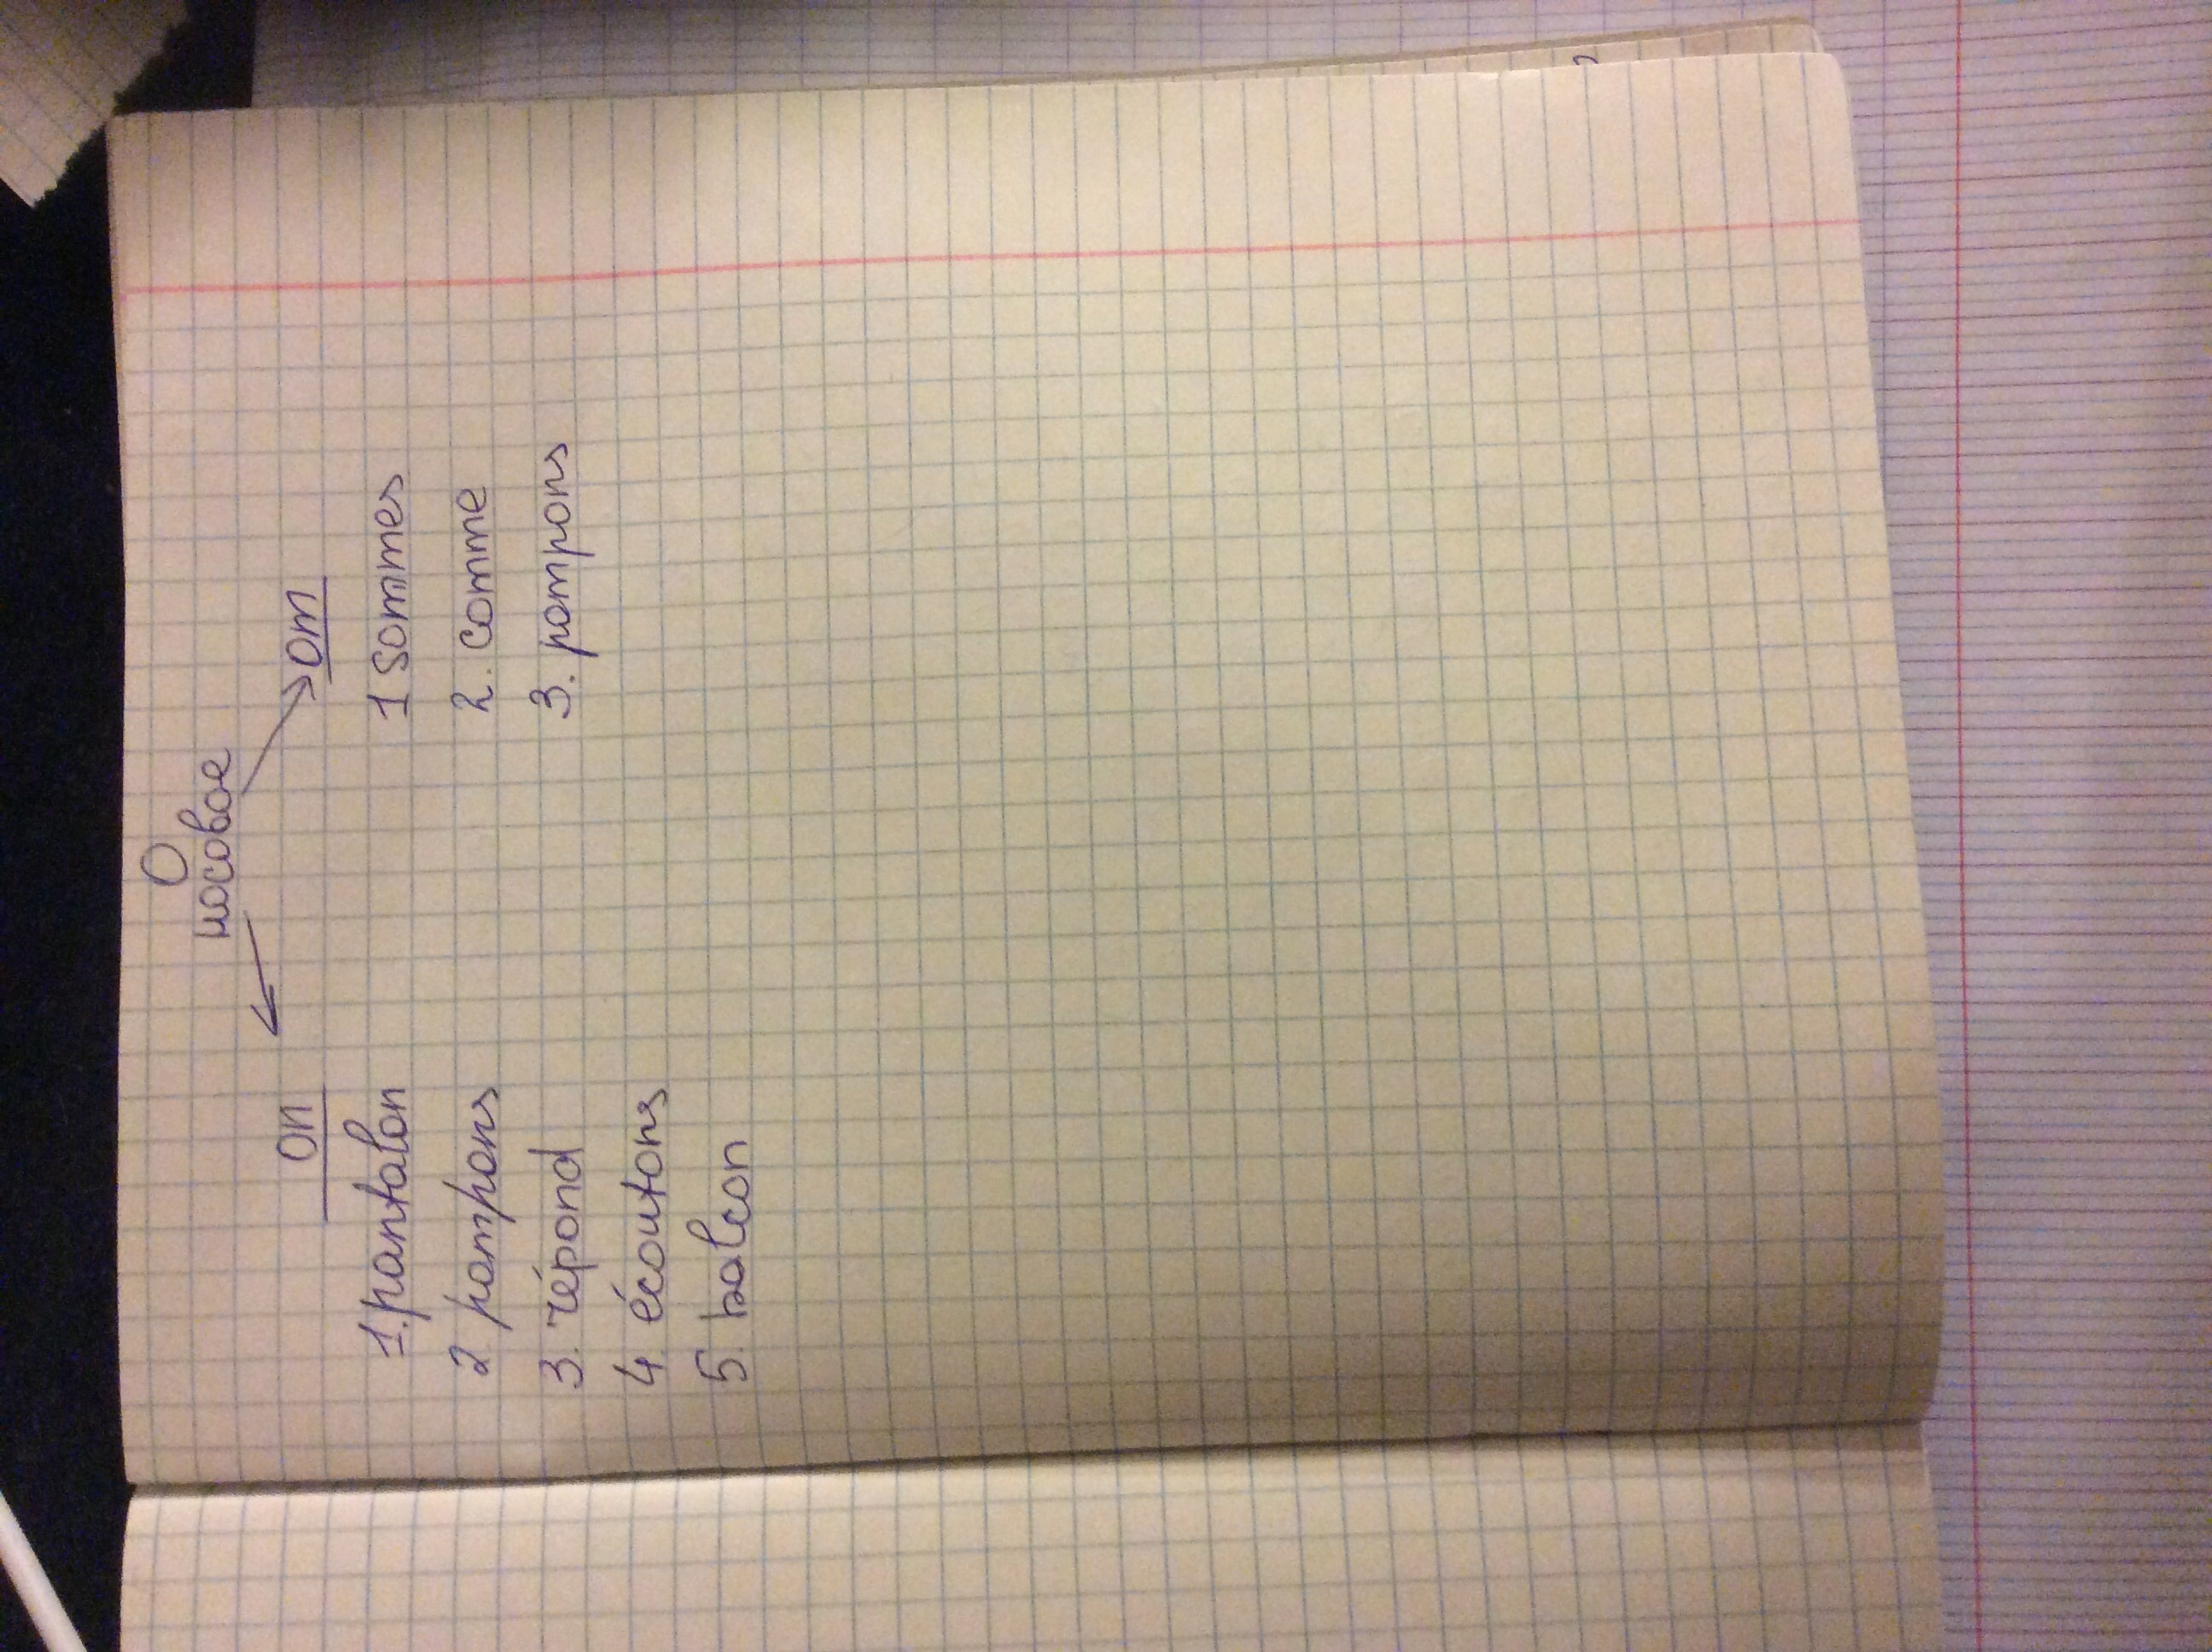 О
носовое
on om
1. pantalon 1 sommes
2 pompons 2. comme
3. répond 3. pompons
4. écoutons
5. balcon